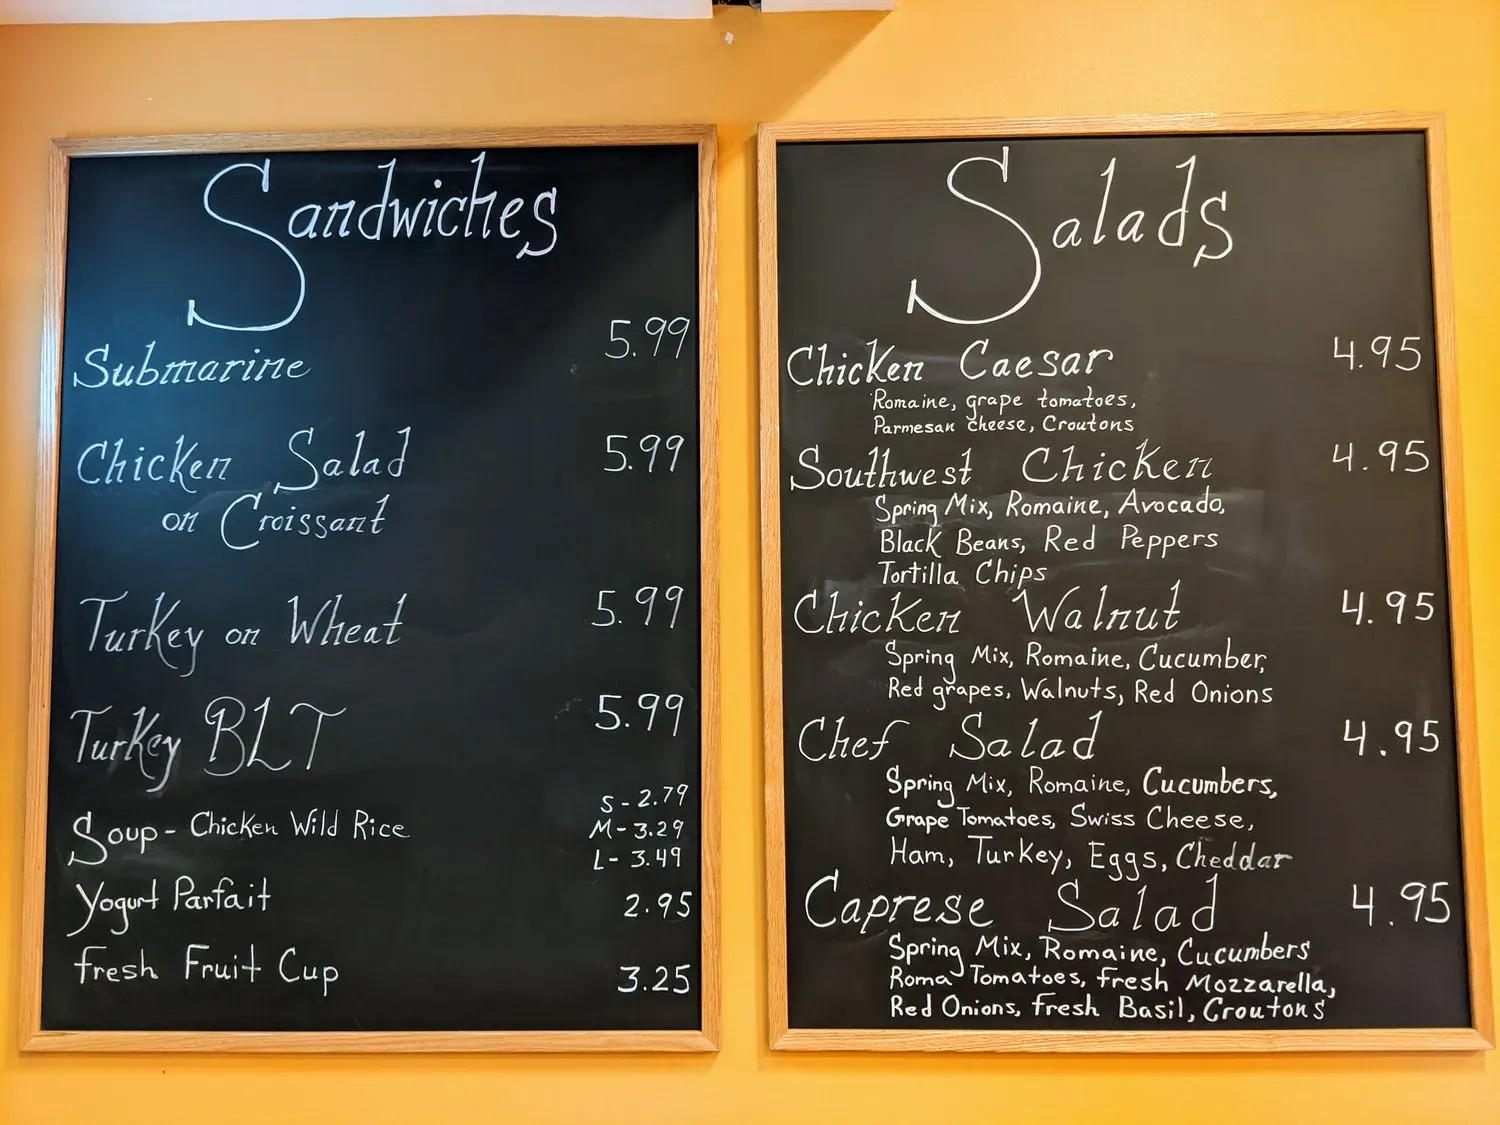 Sandwiches
Submarine 5.99
Chicken Salad 5.99
on Croissant
Turkey on Wheat 5.99
Turkey BLT 5.99
Soup - Chicken Wild Rice S - 2.79
M - 3.29
L - 3.49
Yogurt Parfait 2.95
Fresh Fruit Cup 3.25
Salads
Chicken Caesar 4.95
Romaine, grape tomatoes,
Parmesan cheese, Croutons
Southwest Chicken 4.95
Spring Mix, Romaine, Avocado,
Black Beans, Red Peppers
Tortilla Chips
Chicken Walnut 4.95
Spring Mix, Romaine, Cucumber,
Red grapes, Walnuts, Red Onions
Chef Salad 4.95
Spring Mix, Romaine, Cucumbers,
Grape Tomatoes, Swiss Cheese,
Ham, Turkey, Eggs, Cheddar
Caprese Salad 4.95
Spring Mix, Romaine, Cucumbers
Roma Tomatoes, Fresh Mozzarella,
Red Onions, Fresh Basil, Croutons